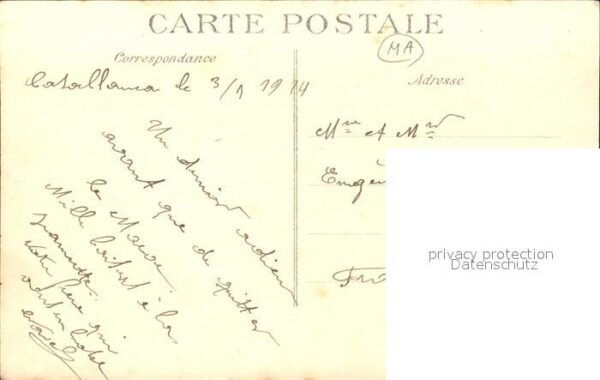 CARTE POSTALE
MA
Correspondance
Adresse
Casablanca le 3/1 1914
Un dernier adieu
avant que de quitter
le Maroc.
Mille baisers à la
votre frère qui
Mme et Mr
Eugèn
privacy protection
Datenschutz